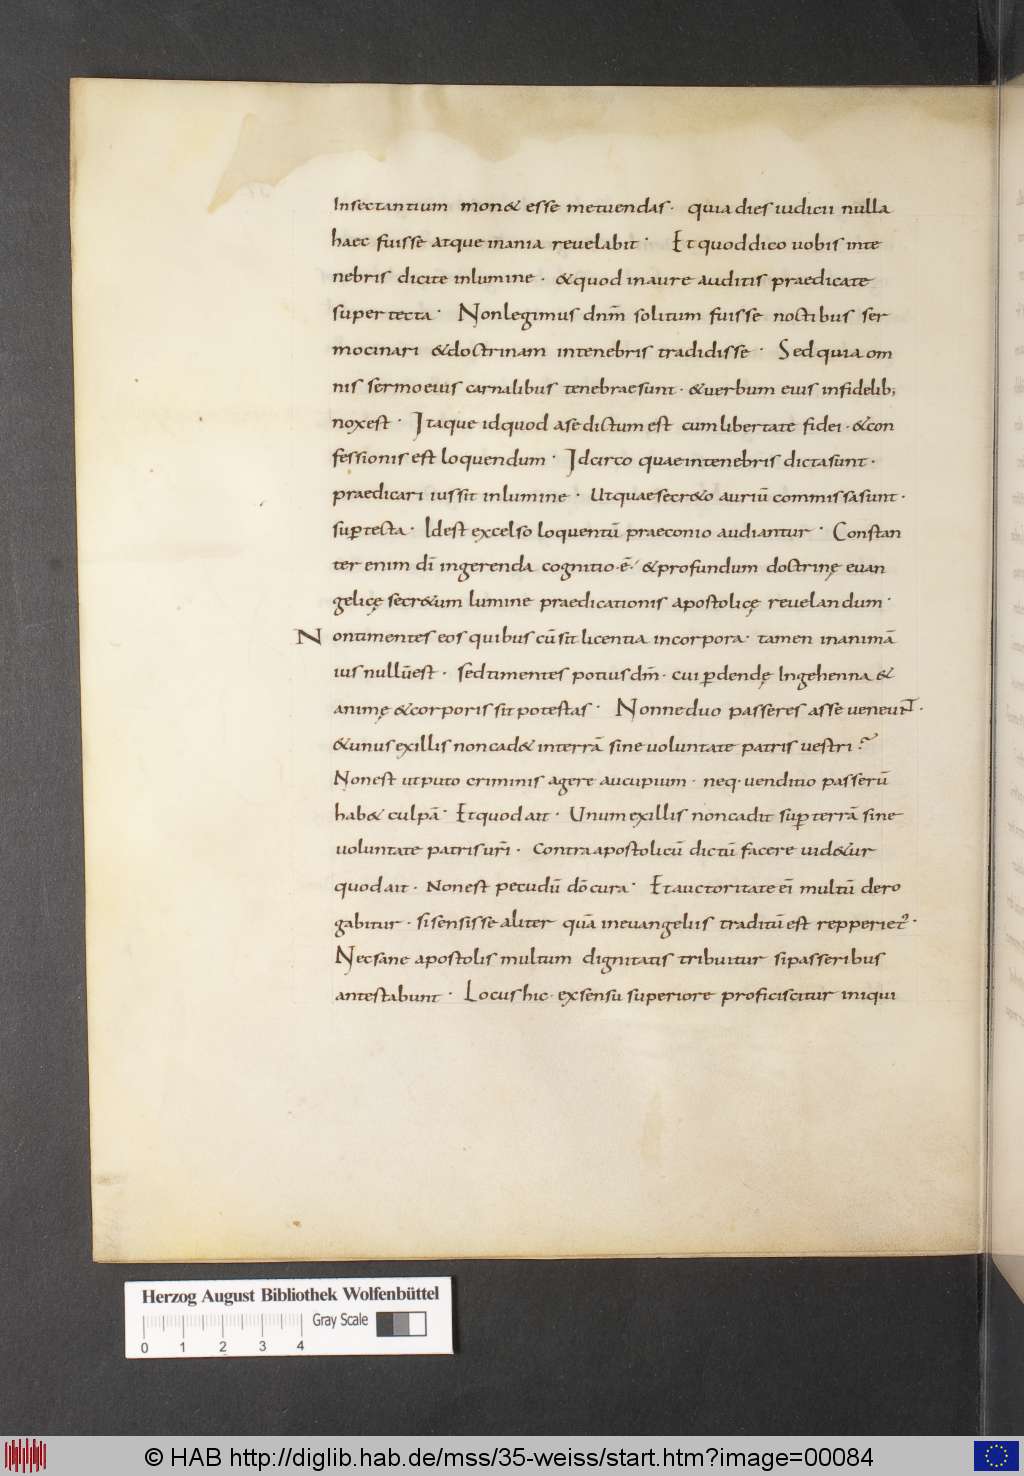 Insectantium mon& esse metuendas · quia dies iudicii nulla
haec fuisse atque inania reuelabit · Et quod dico uobis inte
nebris dicite inlumine · &quod inaure auditis praedicate
super tecta · Nonlegimus dnm̄ solitum fuisse noctibus ser
mocinari &doctrinam intenebris tradidisse · Sed quia om
nis sermo eius carnalibus tenebrae sunt · &uerbum eius infidelib;
nox est · Itaque id quod ase dictum est cum libertate fidei · &con
fessionis est loquendum · Idcirco quae intenebris dicta sunt ·
praedicari iussit inlumine · Ut quae secr&o auriū commissa sunt ·
suꝑ tecta · Idest excelso loquentū praeconio audiantur · Constan
ter enim dī ingerenda cognitio · ē · &profundum doctrinę euan
gelicę secr&um lumine praedicationis apostolicę reuelandum ·
Non timentes eos quibus cū sit licentia incorpora · tamen inanimā
ius nullū est · sed timentes potius dm̄ · cui ꝑdendę Ingehenna &
animę &corporis sit potestas · Nonne duo passeres asse ueneuNT ·
&unus exillis non cad& interrā sine uoluntate patris uestri ?
Non est ut puto criminis agere aucupium · neq · uenditio passerū
hab& culpā · Et quod ait · Unum exillis non cadit suꝑ terrā sine
uoluntate patris urī · contra apostolicū dictū facere uid&ur
quod ait · Non est pecudū dō cura · Et auctoritate eī multū dero
gabitur · si sensisse aliter quā ineuangeliis traditū est repperiet᾽ ·
Nec sane apostolis multum dignitatis tribuitur si passeribus
antestabunt · Locus hic · exsensu superiore proficiscitur iniqui
Herzog August Bibliothek Wolfenbüttel
Gray Scale
0 1 2 3 4
© HAB http://diglib.hab.de/mss/35-weiss/start.htm?image=00084